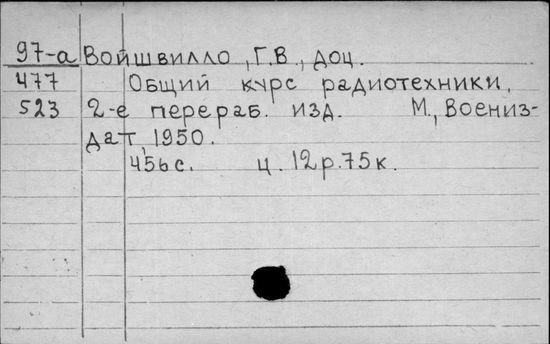 97-а Войшвилло, Г.В., доц.
477 Общий курс радиотехники,
523 2-е перераб. изд. М., Воениз-
дат, 1950.
456 с. ц. 12р.75к.